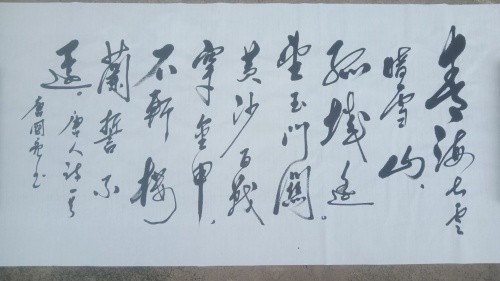 青海长云
暗雪山,
孤城遥
望玉门關。
黄沙百战
穿金甲,
不斬楼
蘭誓不
還。唐人诗一首
唐國书